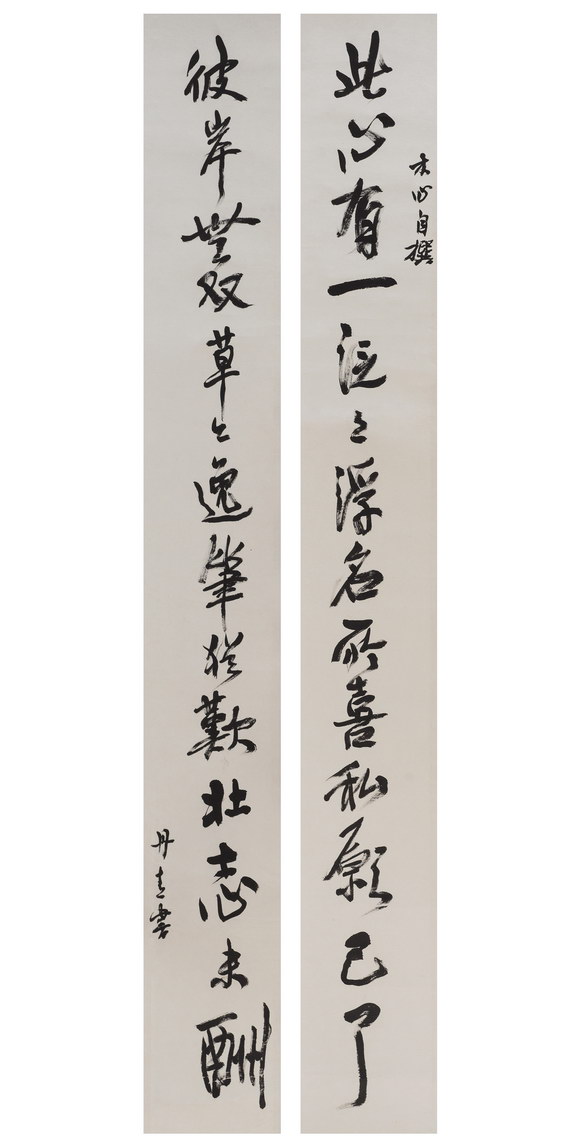 木心自撰
此心有一泛々浮名所喜私願已了
彼岸無双草々逸筆猶歎壮志未酬
丹青書